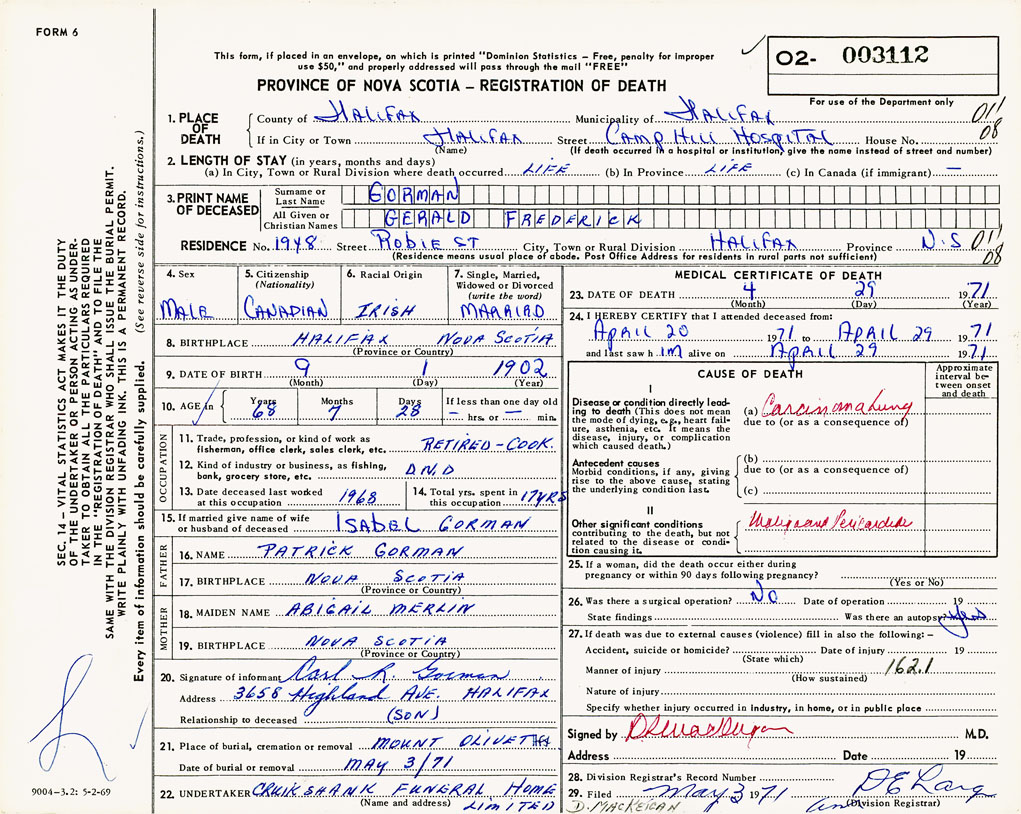 FORM 6
This form, if placed in an envelope, on which is printed "Dominion Statistics – Free, penalty for improper
use $50," and properly addressed will pass through the mail "FREE"
02- 003112
PROVINCE OF NOVA SCOTIA – REGISTRATION OF DEATH
For use of the Department only
1. PLACE OF DEATH
County of HALIFAX Municipality of HALIFAX 011
If in City or Town HALIFAX Street CAMP HILL HOSPITAL House No. 08
(Name) (If death occurred in a hospital or institution, give the name instead of street and number)
2. LENGTH OF STAY (in years, months and days)
(a) In City, Town or Rural Division where death occurred LIFE (b) In Province LIFE (c) In Canada (if immigrant) —
3. PRINT NAME OF DECEASED
Surname or Last Name GORMAN
All Given or Christian Names GERALD FREDERICK
RESIDENCE No. 1948 Street ROBIE ST City, Town or Rural Division HALIFAX Province N.S 011
(Residence means usual place of abode. Post Office Address for residents in rural parts not sufficient) 08
4. Sex
MALE
5. Citizenship
(Nationality)
CANADIAN
6. Racial Origin
IRISH
7. Single, Married,
Widowed or Divorced
(write the word)
MARRIED
8. BIRTHPLACE HALIFAX NOVA SCOTIA
(Province or Country)
9. DATE OF BIRTH 9 1 1902
(Month) (Day) (Year)
10. AGE in Years Months Days If less than one day
68 7 28 – hrs. or – min.
OCCUPATION
11. Trade, profession, or kind of work as
fisherman, office clerk, sales clerk, etc. RETIRED-COOK.
12. Kind of industry or business, as fishing,
bank, grocery store, etc. D.N.D
13. Date deceased last worked
at this occupation 1968
14. Total yrs. spent in
this occupation 17 YRS
15. If married give name of wife
or husband of deceased ISABEL GORMAN
FATHER
16. NAME PATRICK GORMAN
17. BIRTHPLACE NOVA SCOTIA
(Province or Country)
MOTHER
18. MAIDEN NAME ABIGAIL MERLIN
19. BIRTHPLACE NOVA SCOTIA
(Province or Country)
20. Signature of informant Carl R. Gorman
Address 3658 Highland AVE. HALIFAX
Relationship to deceased (SON)
21. Place of burial, cremation or removal MOUNT OLIVET
Date of burial or removal MAY 3/71
22. UNDERTAKER CRUIKSHANK FUNERAL HOME
(Name and address) LIMITED
MEDICAL CERTIFICATE OF DEATH
23. DATE OF DEATH 4 29 1971
(Month) (Day) (Year)
24. I HEREBY CERTIFY that I attended deceased from:
APRIL 20 1971 to APRIL 29 1971
and last saw him alive on APRIL 29 1971
CAUSE OF DEATH
Approximate
interval be-
tween onset
and death
I
Disease or condition directly lead-
ing to death (This does not mean
the mode of dying, e.g., heart fail-
ure, asthenia, etc. It means the
disease, injury, or complication
which caused death.)
(a) Carcinoma Lung
due to (or as a consequence of)
Antecedent causes
Morbid conditions, if any, giving
rise to the above cause, stating
the underlying condition last.
(b)
due to (or as a consequence of)
(c)
II
Other significant conditions
contributing to the death, but not
related to the disease or condi-
tion causing it.
Malignant Pericarditis
25. If a woman, did the death occur either during
pregnancy or within 90 days following pregnancy?
(Yes or No)
26. Was there a surgical operation? NO Date of operation 19
State findings Was there an autopsy?
27. If death was due to external causes (violence) fill in also the following:–
Accident, suicide or homicide? Date of injury 19
(State which)
Manner of injury 162.1
(How sustained)
Nature of injury
Specify whether injury occurred in industry, in home, or in public place
Signed by M.D.
Address Date 19
28. Division Registrar's Record Number
29. Filed May 3 1971
(Division Registrar)
D. MACKEIGAN
SEC. 14 – VITAL STATISTICS ACT MAKES IT THE DUTY
OF THE UNDERTAKER OR PERSON ACTING AS UNDER-
TAKER TO OBTAIN ALL THE PARTICULARS REQUIRED
IN THE "REGISTRATION OF DEATH" AND TO FILE THE
SAME WITH THE DIVISION REGISTRAR WHO SHALL ISSUE THE BURIAL PERMIT.
WRITE PLAINLY WITH UNFADING INK. THIS IS A PERMANENT RECORD.
Every item of information should be carefully supplied. (See reverse side for instructions.)
9004-3.2: 5-2-69